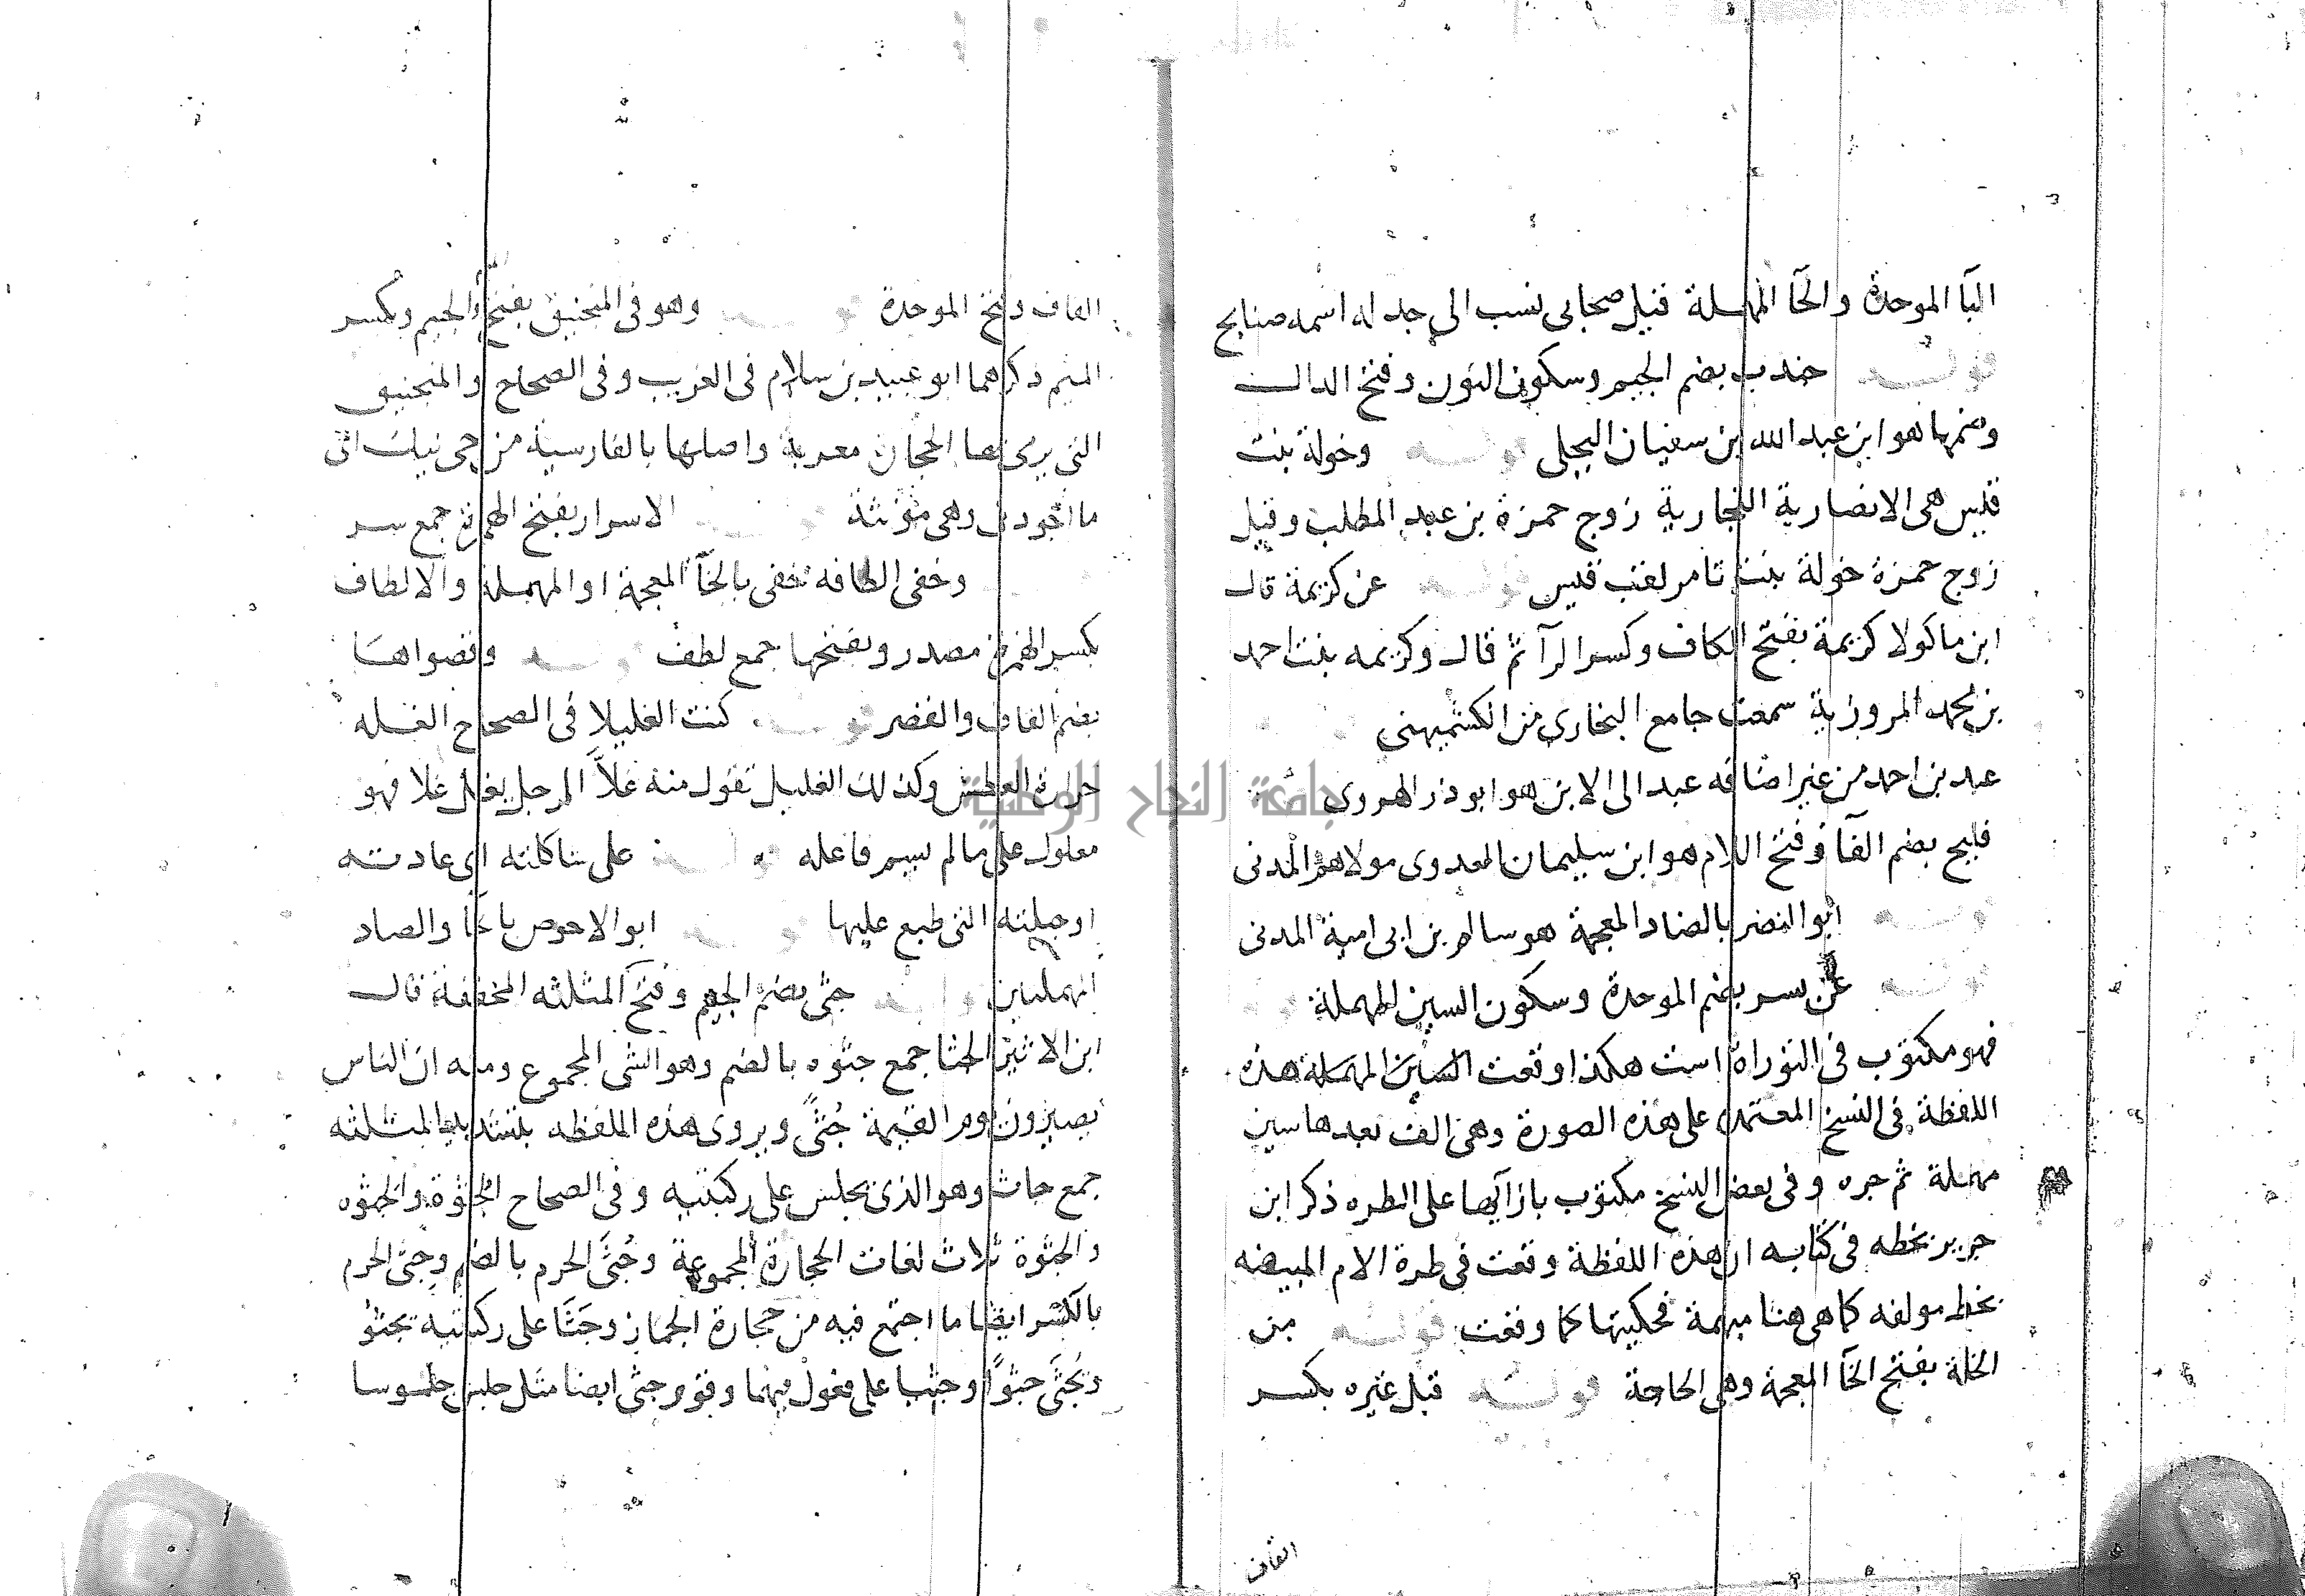 البآ الموحدة والحآ المهملة قيل صحابى نسب الى جد له اسمه صنابح
قولـــه جندب بضم الجيم وسكون النون وفتح الدال
وضمها هو ابن عبد الله بن سفيان البجلى قولـــه وخولة بنت
قيس هى الانصارية النجارية زوج حمزة بن عبد المطلب وقيل
زوج حمزة خولة بنت ثامر لقب قيس قولـــه عن كريمة قال
ابن ماكولا كريمة بفتح الكاف وكسر الرآ ثم قال وكريمه بنت احمد
بن محمد المروزية سمعت جامع البخارى من الكشميهنى
عبد بن احمد من غير اضافه عبد الى الابن هو ابو ذر الهروى
فليح بضم الفآ وفتح اللام هو ابن سليمان العدوى مولاهم المدنى
قولـــه ابو النضر بالضاد المعجمة هو سالم بن ابى امية المدنى
قولـــه عن بسر بضم الموحدة وسكون السين المهملة
فهو مكتوب فى التوراة است هكذا وقعت السين المهملة هذه
اللفظة فى النسخ المعتمدة على هذه الصورة وهى الف بعدها سين
مهملة ثم جره وفى بعض النسخ مكتوب بازآيها على الطره ذكر ابن
جرير بخطه فى كتابه ان هذه اللفظة وقعت فى طرة الام المبيضه
بخط مولفه كما هى هنا مبهمة فحكيتها كما وقعت قولـــه من
الخلة بفتح الخآ المعجمة وهى الحاجة قولـــه قبل غيره بكسر
القاف
القاف وفتح الموحدة قولـــه وهو فى المنجنيق بفتح الجيم وبكسر
الميم ذكرهما ابو عبيد بن سلام فى الغريب وفى الصحاح والمنجنيق
التى يرمى بها الحجارة معربة واصلها بالفارسية من جى نيك اى
ما اجودنى وهى مؤنثة الاسرار بفتح الهمزة جمع سر
وخفى الطافه خفى بالخآ المعجمة او المهملة والالطاف
بكسر الهمزة مصدر وبفتحها جمع لطف قولـــه وقصواها
بضم القاف والقصر قولـــه كنت الغليلا فى الصحاح الغلة
حرارة العطش وكذلك الغليل تقول منه غلاَّ الرجل يغل غلا فهو
مغلول على ما لم يسم فاعله قولـــه على شاكلته اى عادته
او جبلته التى طبع عليها قولـــه ابو الاحوص بالحآ والصاد
المهملتين قولـــه جثى بضم الجيم وفتح المثلثه المخففة قال
ابن الاثير الجثا جمع جثوه بالضم وهو الشى المجموع ومنه ان الناس
يصيرون يوم القيمة جُثًى ويروى هذه اللفظه بتشديد المثلثه
جمع جاث وهو الذى يجلس على ركبتيه وفى الصحاح الجُثوة والجَثوه
والجثوة ثلاث لغات الحجارة المجموعة وجُثَى الحرم بالضم وجِثى الحرم
بالكسر ايضا ما اجتمع فيه من حجارة الجمار وجَثَا على ركبتيه يجثو
ويجُثَى جثوًا وجثيا على فعول فيهما وقوم جثى ايضا مثل جلس جلوسا